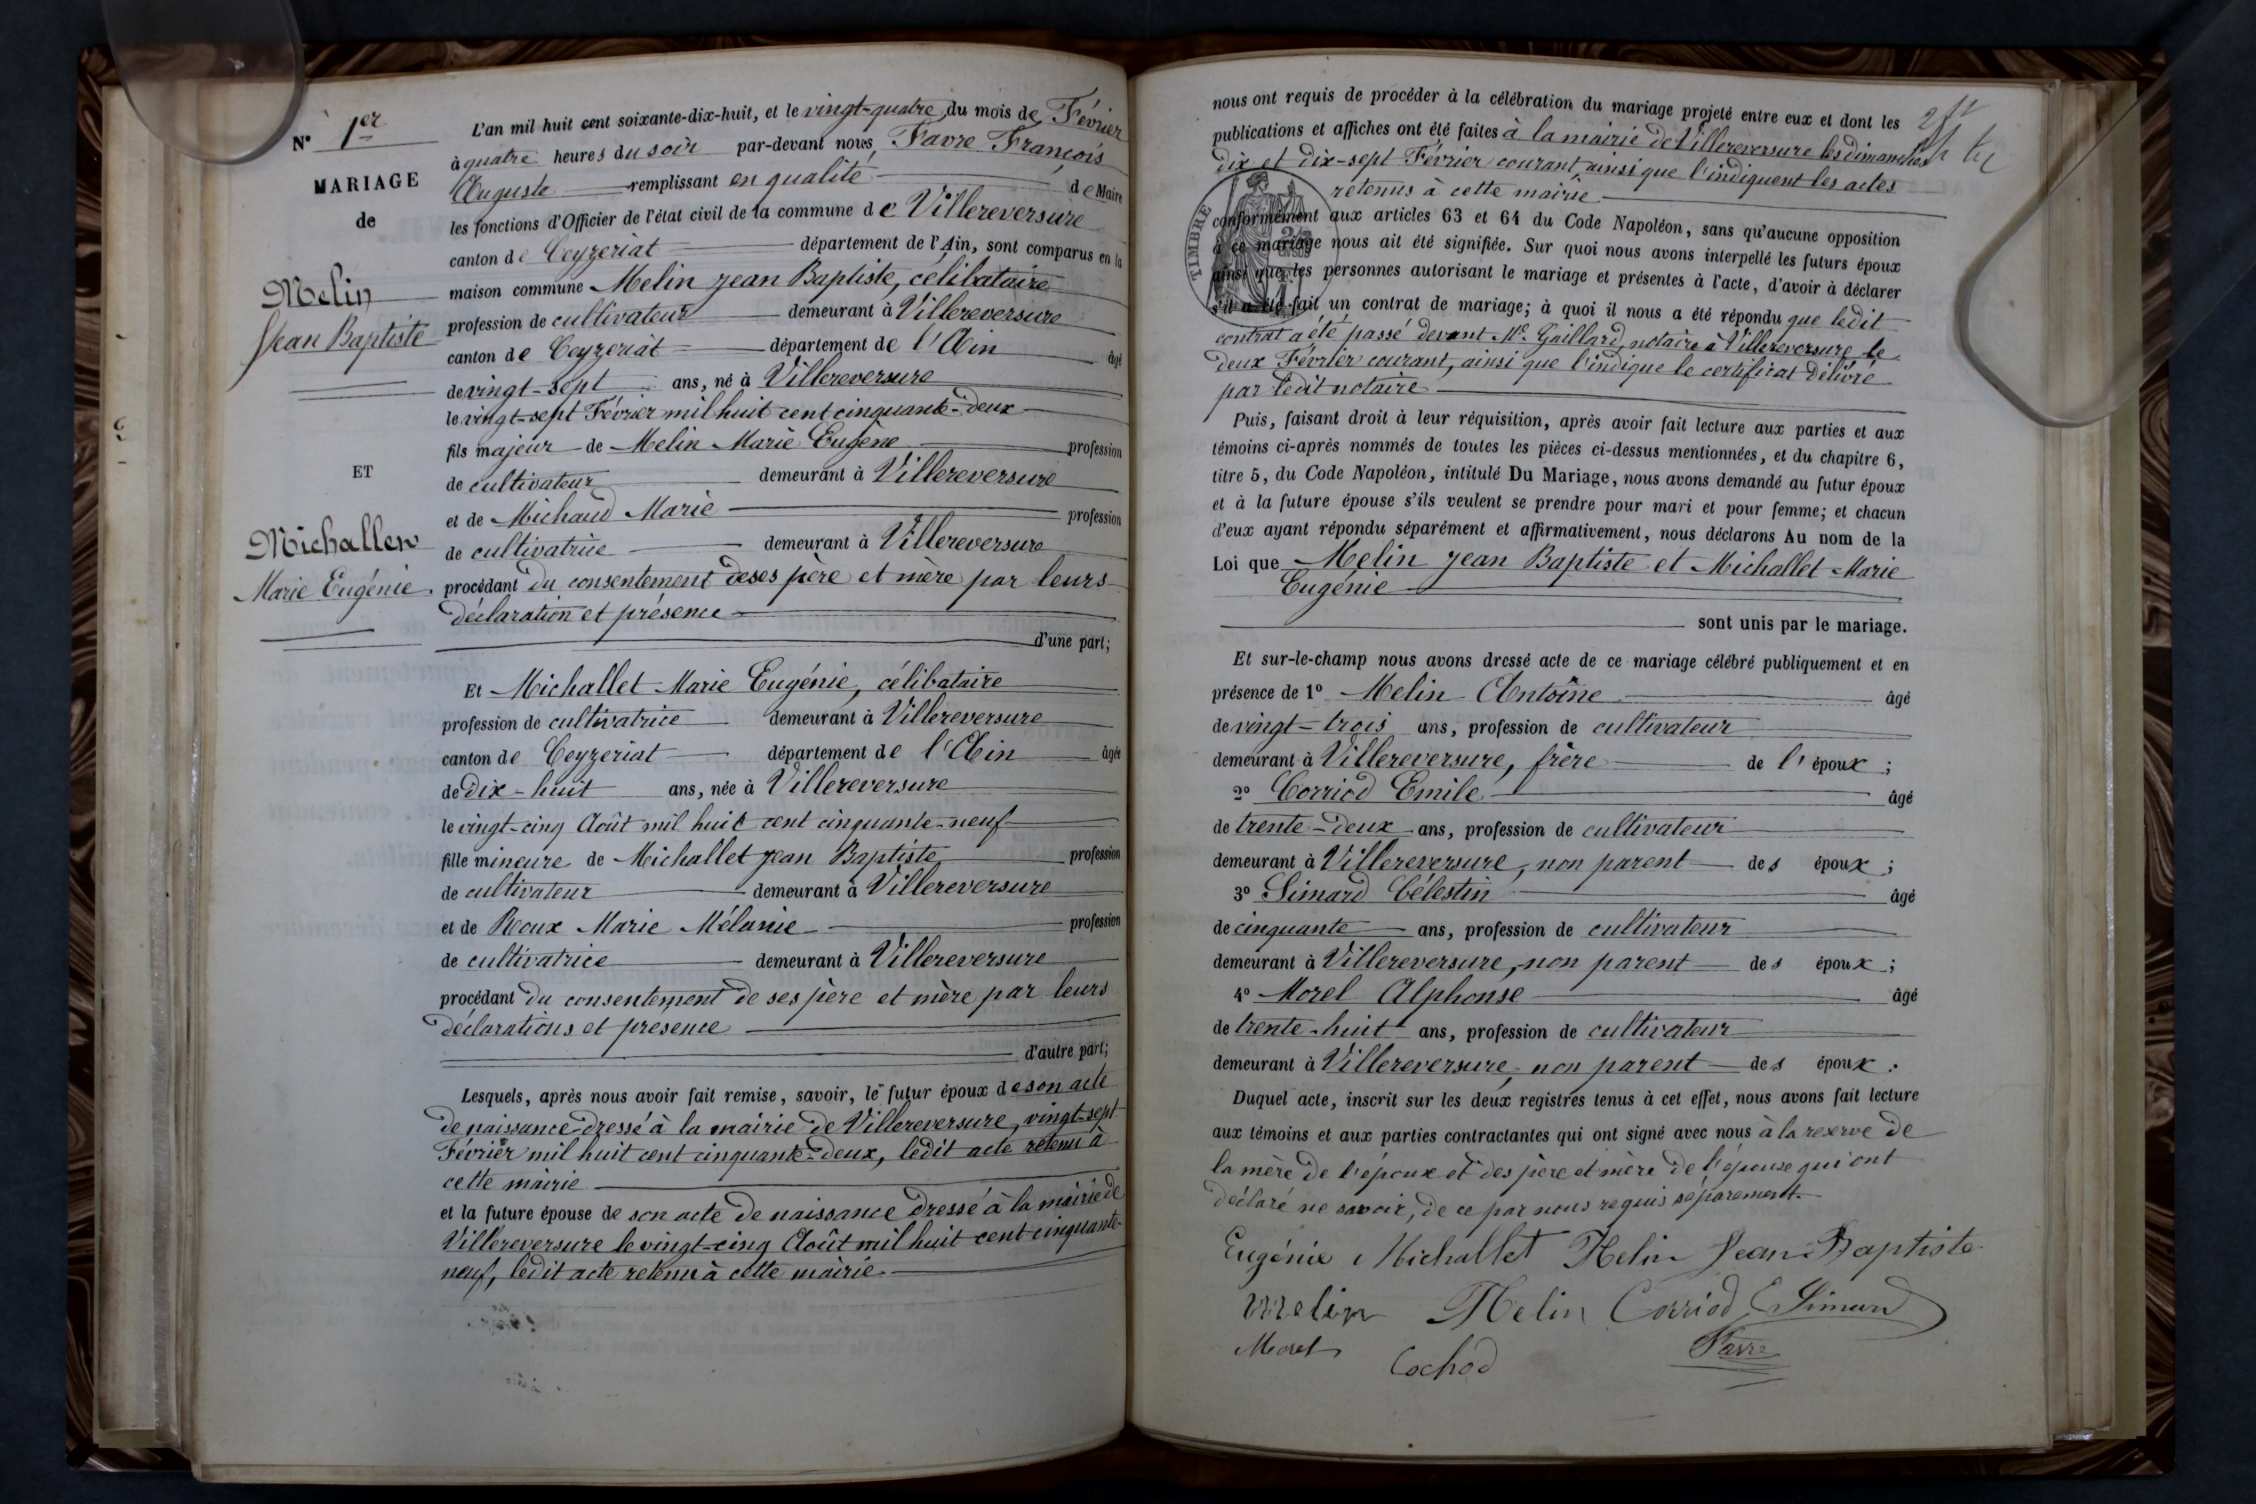 N° 1er
MARIAGE
de
Melin
Jean Baptiste
ET
Michallet
Marie Eugénie
L'an mil huit cent soixante-dix-huit, et le vingt-quatre du mois de Février
à quatre heures du soir par-devant nous, Favre François
Auguste remplissant en qualité de Maire
les fonctions d'Officier de l'état civil de la commune de Villereversure
canton de Ceyzeriat département de l'Ain, sont comparus en la
maison commune Melin Jean Baptiste, célibataire
profession de cultivateur demeurant à Villereversure
canton de Ceyzeriat département de l'Ain âgé
de vingt-sept ans, né à Villereversure
le vingt-sept Février mil huit cent cinquante-deux
fils majeur de Melin Marie Eugène profession
de cultivateur demeurant à Villereversure
et de Michaud Marie profession
de cultivatrice demeurant à Villereversure
procédant du consentement de ses père et mère par leurs
déclaration et présence
d'une part;
Et Michallet Marie Eugénie, célibataire
profession de cultivatrice demeurant à Villereversure
canton de Ceyzeriat département de l'Ain âgée
de dix-huit ans, née à Villereversure
le vingt-cinq Août mil huit cent cinquante-neuf
fille mineure de Michallet Jean Baptiste profession
de cultivateur demeurant à Villereversure
et de Roux Marie Mélanie profession
de cultivatrice demeurant à Villereversure
procédant du consentement de ses père et mère par leurs
déclarations et présence
d'autre part;
Lesquels, après nous avoir fait remise, savoir, le futur époux de son acte
de naissance dressé à la mairie de Villereversure, vingt-sept
Février mil huit cent cinquante-deux, ledit acte retenu à
cette mairie
et la future épouse de son acte de naissance dressé à la mairie de
Villereversure le vingt-cinq Août mil huit cent cinquante-
neuf, ledit acte retenu à cette mairie
nous ont requis de procéder à la célébration du mariage projeté entre eux et dont les
publications et affiches ont été faites à la mairie de Villereversure les dimanches
dix et dix-sept Février courant, ainsi que l'indiquent les actes
retenus à cette mairie
TIMBRE
conformément aux articles 63 et 64 du Code Napoléon, sans qu'aucune opposition
à ce mariage nous ait été signifiée. Sur quoi nous avons interpellé les futurs époux
ainsi que les personnes autorisant le mariage et présentes à l'acte, d'avoir à déclarer
s'il a été fait un contrat de mariage; à quoi il nous a été répondu que ledit
contrat a été passé devant Me Gaillard, notaire à Villereversure le
deux Février courant, ainsi que l'indique le certificat délivré
par ledit notaire
Puis, faisant droit à leur réquisition, après avoir fait lecture aux parties et aux
témoins ci-après nommés de toutes les pièces ci-dessus mentionnées, et du chapitre 6,
titre 5, du Code Napoléon, intitulé Du Mariage, nous avons demandé au futur époux
et à la future épouse s'ils veulent se prendre pour mari et pour femme; et chacun
d'eux ayant répondu séparément et affirmativement, nous déclarons Au nom de la
Loi que Melin Jean Baptiste et Michallet Marie
Eugénie
sont unis par le mariage.
Et sur-le-champ nous avons dressé acte de ce mariage célébré publiquement et en
présence de 1° Melin Antoine âgé
de vingt-trois ans, profession de cultivateur
demeurant à Villereversure, frère de l'époux;
2° Corriod Emile âgé
de trente-deux ans, profession de cultivateur
demeurant à Villereversure, non parent des époux;
3° Simard Célestin âgé
de cinquante ans, profession de cultivateur
demeurant à Villereversure, non parent des époux;
4° Morel Alphonse âgé
de trente-huit ans, profession de cultivateur
demeurant à Villereversure, non parent des époux.
Duquel acte, inscrit sur les deux registres tenus à cet effet, nous avons fait lecture
aux témoins et aux parties contractantes qui ont signé avec nous à la reserve de
la mère de l'époux et des père et mère de l'épouse qui ont
déclaré ne savoir, de ce par nous requis séparement.
Eugénie Michallet Melin Jean Baptiste
Melin Melin Corriod Simard
Morel Cochod Favre